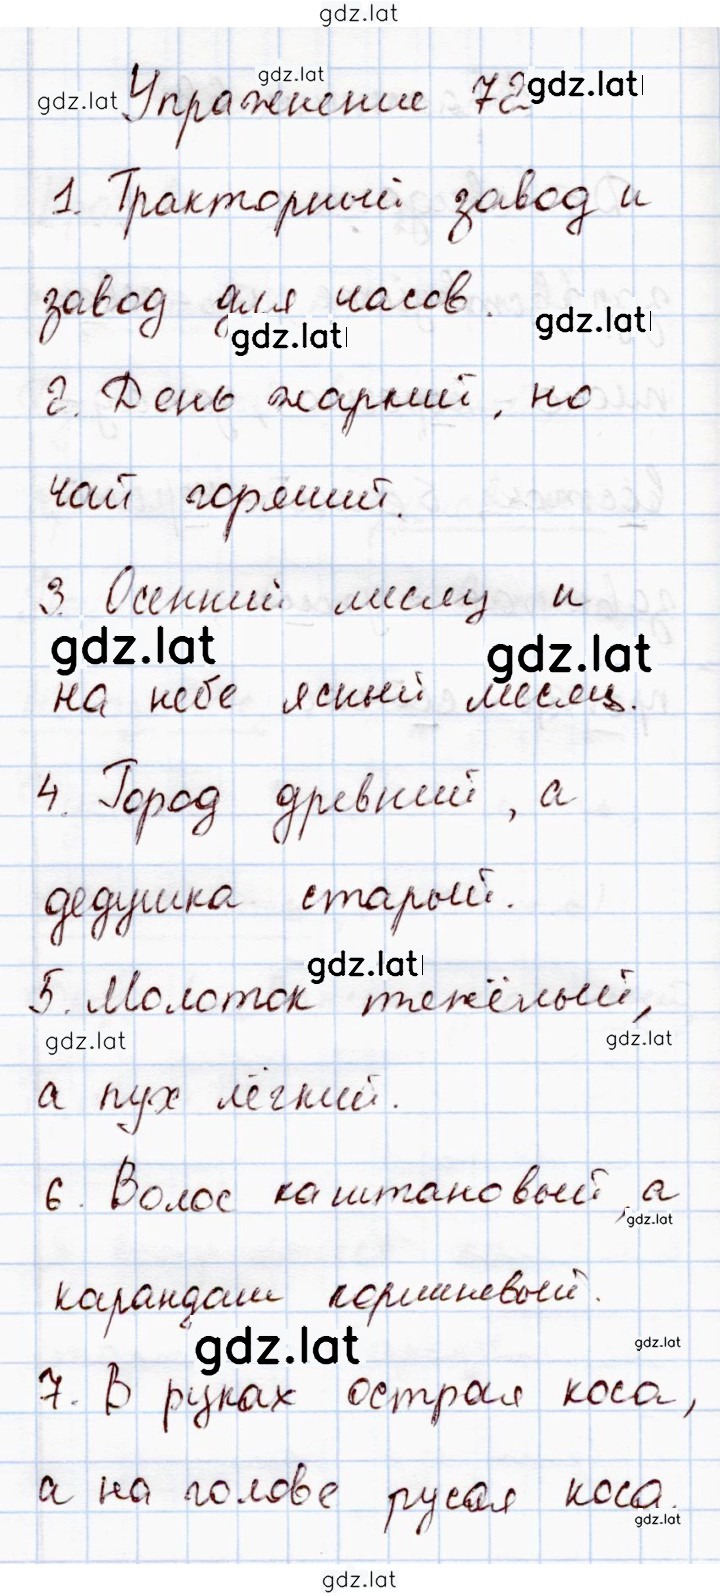 gdz.lat
gdz.lat
gdz.lat Упражнение 72 gdz.lat
1. Тракторный завод и
завод для часов.
gdz.lat gdz.lat
2. День жаркий, но
чай горячий.
3. Осенний месяц и
gdz.lat gdz.lat
на небе ясный месяц.
4. Город древний, а
дедушка старый.
gdz.lat
5. Молоток тяжёлый,
gdz.lat gdz.lat
а пух лёгкий.
6. Волос каштановый, а
gdz.lat
карандаш коричневый.
gdz.lat gdz.lat
7. В руках острая коса,
а на голове русая коса.
gdz.lat
gdz.lat